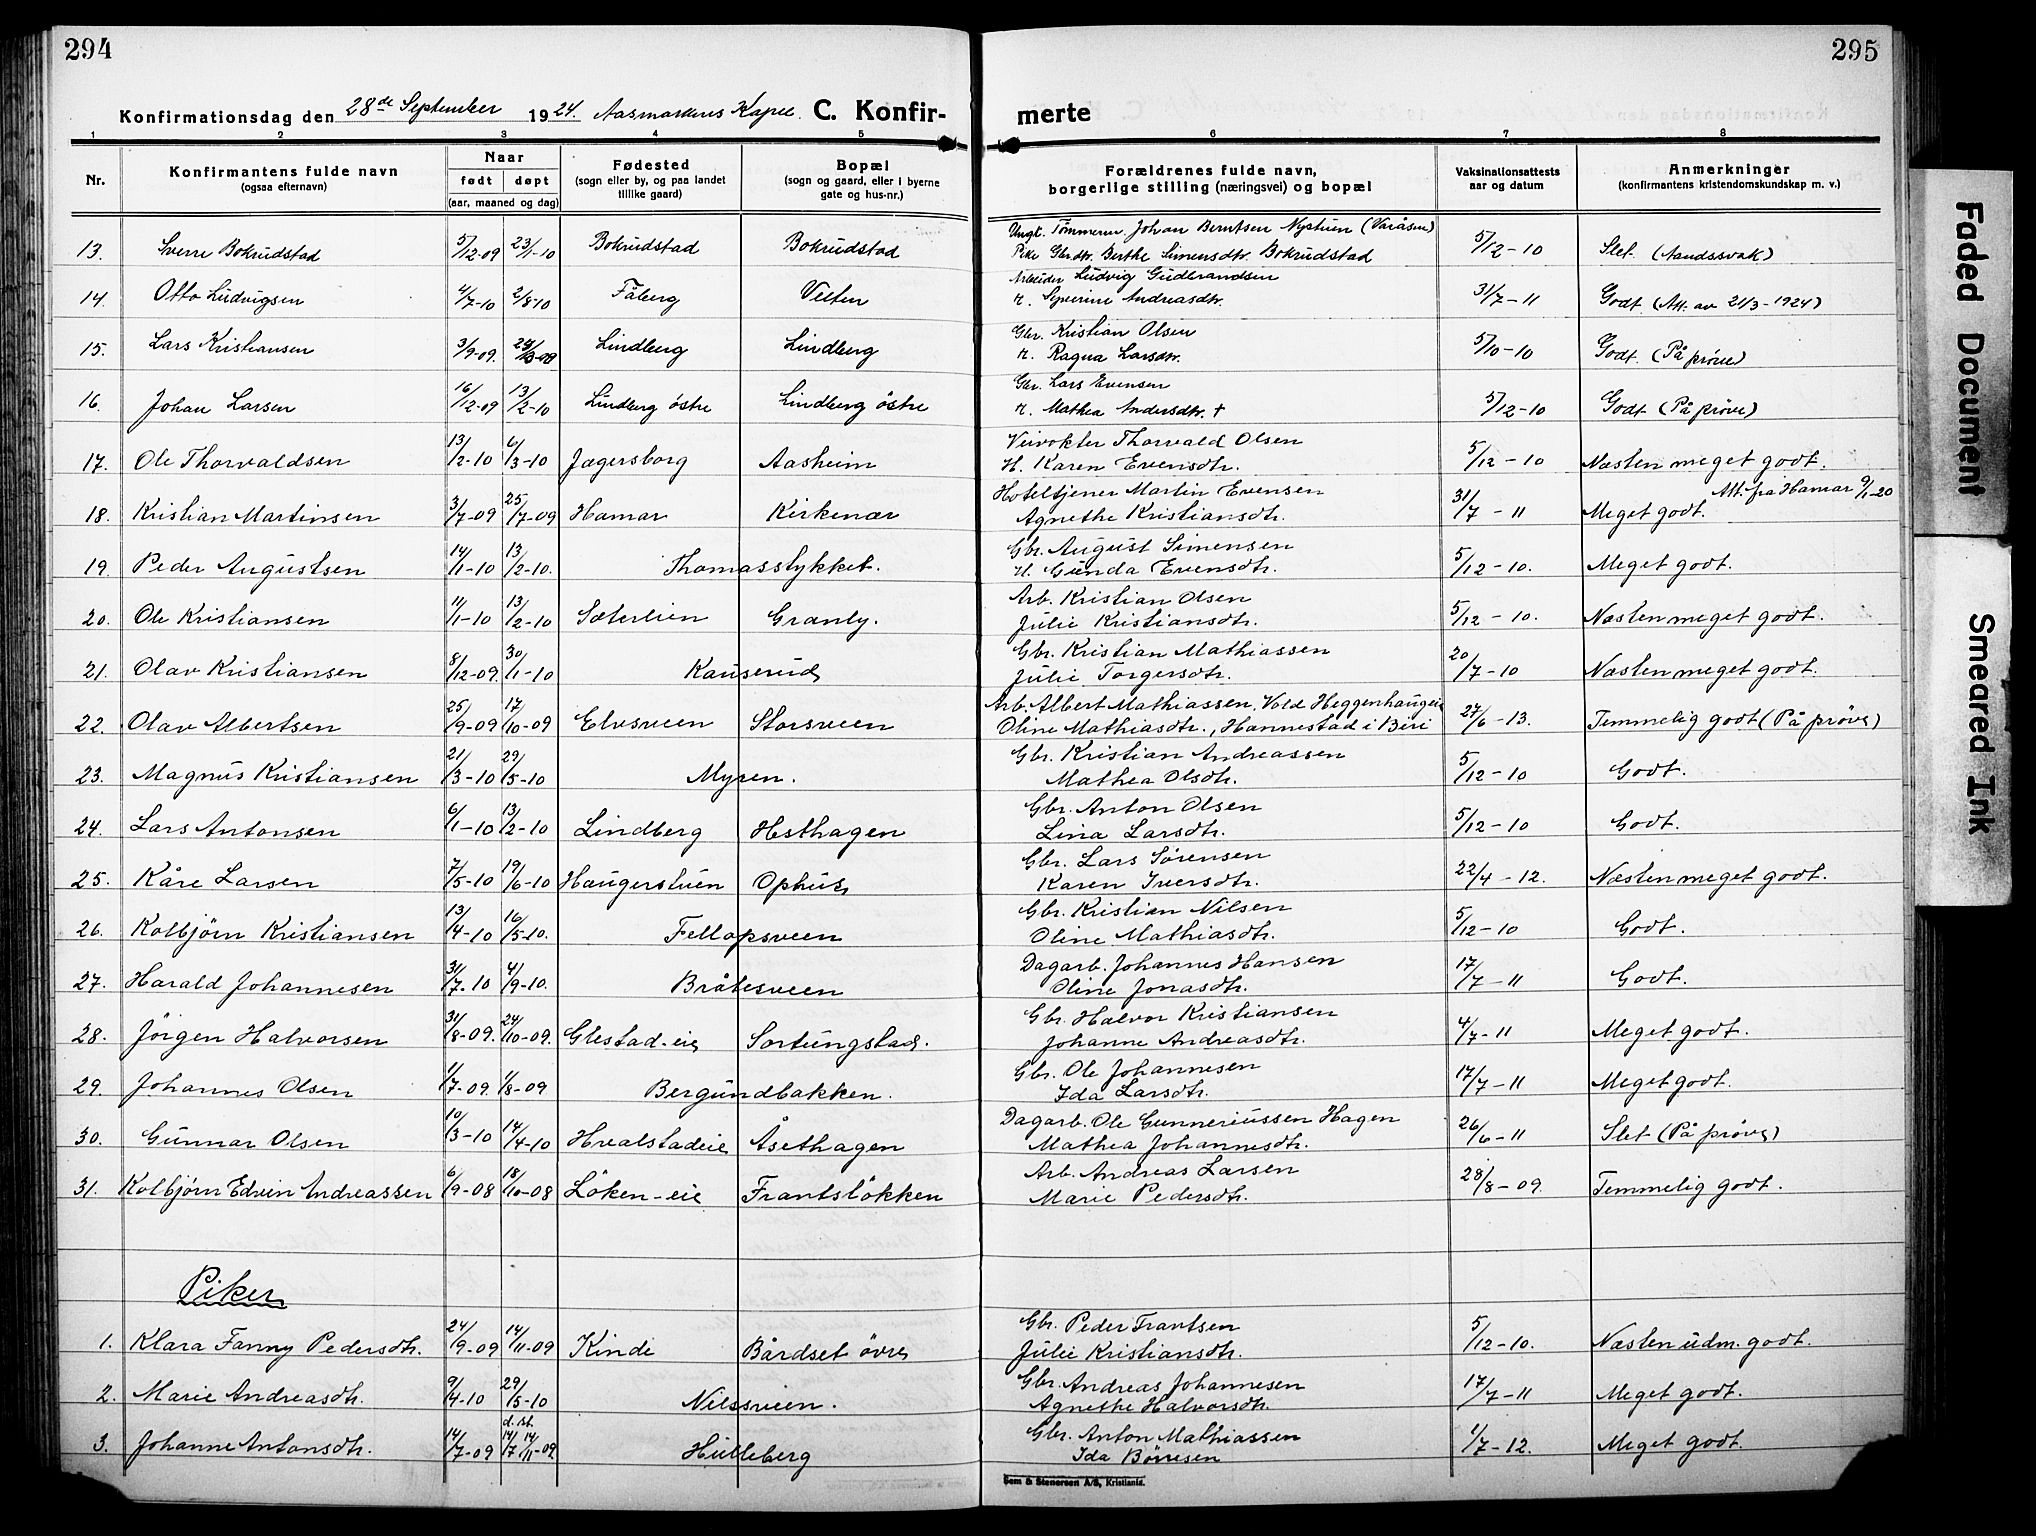 294
295
Konfirmationsdag den 28de September 1924. Aasmarkens Kapel. C. Konfir-
merte
1 2 3 4 5 6 7 8
Nr. Konfirmantens fulde navn (ogsaa efternavn) Naar født døpt (aar, maaned og dag) Fødested (sogn eller by, og paa landet tillike gaard) Bopæl (sogn og gaard, eller i byerne gate og hus-nr.) Forældrenes fulde navn, borgerlige stilling (næringsvei) og bopæl Vaksinationsattests aar og datum Anmerkninger (konfirmantens kristendomskundskap m. v.)
Ungt. Tømmerm. Johan Berntsen Nystuen (Varåsen)
13. Sverre Bokrudstad 5/12-09 23/1-10 Bokrudstad Bokrudstad Pike Gbrdtr. Berthe Simensdtr. Bokrudstad 5/12-10 Slet. (Aandssvak)
Arbeider Ludvig Gudbrandsen
14. Otto Ludvigsen 4/7-10 2/8-10 Fåberg Velten H. Severine Andreasdtr. 31/7-11 Godt (Att. av 21/3-1924)
Gbr. Kristian Olsen
15. Lars Kristiansen 3/9-09. Lindberg Lindberg H. Ragna Larsdtr. 5/10-10 Godt. (På prøve)
Gbr. Lars Evensen
16. Johan Larsen 16/12-09 13/2-10 Lindberg østre Lindberg østre H. Mathea Andersdtr. † 5/12-10 Godt (På prøve)
Veivokter Thorvald Olsen
17. Ole Thorvaldsen 13/2-10 6/3-10 Jægersborg Aasheim H. Karen Evensdtr. 5/12-10 Næsten meget godt.
Hoteltjener Martin Evensen Att. fra Hamar 9/1-20
18. Kristian Martinsen 3/7-09 25/7-09 Hamar Kirkenær Agnethe Kristiansdtr. 31/7-11 Meget godt.
Gbr. August Simensen
19. Peder Augustsen 14/1-10 13/2-10. Thomasstykket. H. Gunda Evensdtr. 5/12-10. Meget godt.
Arb. Kristian Olsen
20. Ole Kristiansen 11/1-10 13/2-10 Sæterlien Granly. Julie Kristiansdtr. 5/12-10. Næsten meget godt.
Gbr. Kristian Mathiassen
21. Olav Kristiansen 8/12-09. 30/1-10 Kauserud Julie Torgersdtr. 20/7-10 Næsten meget godt.
Arb. Albert Mathiassen, Vold Heggenhaugen
22. Olav Albertsen 25/9-09 17/10-09 Elvsveen Storsveen Oline Mathiasdtr., Hannestad i Biri 27/6-13. Temmelig godt (På prøve)
Gbr. Kristian Andreassen
23. Magnus Kristiansen 21/3-10 29/5-10 Myren. Mathea Olsdtr. 5/12-10 Godt.
Gbr. Anton Olsen
24. Lars Antonsen 6/1-10 13/2-10 Lindberg Hesthagen Lina Larsdtr. 5/12-10 Godt.
Gbr. Lars Sørensen
25. Kåre Larsen 7/5-10 19/6-10 Haugerstuen Ophus Karen Iversdtr. 22/4-12. Næsten meget godt.
Gbr. Kristian Nilsen
26. Kolbjørn Kristiansen 13/4-10 16/5-10. Fellopsveen Oline Mathiasdtr. 5/12-10 Godt.
Dagarb. Johannes Hansen
27. Harald Johannesen 31/7-10 4/9-10. Bråtesveen Oline Jonasdtr. 17/7-11 Godt.
Gbr. Halvor Kristiansen
28. Jörgen Halvorsen 31/8-09. 24/10-09. Glestad-eie Sortungstad. Johanne Andreasdtr. 4/7-11 Meget godt.
Gbr. Ole Johannesen
29. Johannes Olsen 1/7-09. 1/8-09 Bergundbakken. Ida Larsdtr. 17/7-11 Meget godt.
Dagarb. Ole Gunneriussen Hagen
30. Gunnar Olsen 10/3-10 14/4-10 Hvalstadeie Åsethagen Mathea Johannesdtr. 26/6-11 Slet (På prøve)
Arb. Andreas Larsen
31. Kolbjørn Edvin Andreassen 6/9-08 18/10-08 Löken-eie Frantsløkken Marie Pedersdtr. 28/8-09. Temmelig godt.
Piker
Gbr. Peder Frantsen
1. Klara Fanny Pedersdtr. 24/9-09 14/11-09 Kinde Bårdset øvre Julie Kristiansdtr. 5/12-10. Næsten udm. godt.
Gbr. Andreas Johannesen
2. Marie Andreasdtr. 9/4-10 29/5-10 Nilssveen. Agnethe Halvorsdtr. 17/7-11 Meget godt.
Gbr. Anton Mathiassen
3. Johanne Antonsdtr. 14/7-09 d. st. 14/7 14/11-09 Hulleberg Ida Børresen 1/7-12. Meget godt.
Sem & Stenersen A/S, Kristiania.
Faded Document
Smeared Ink